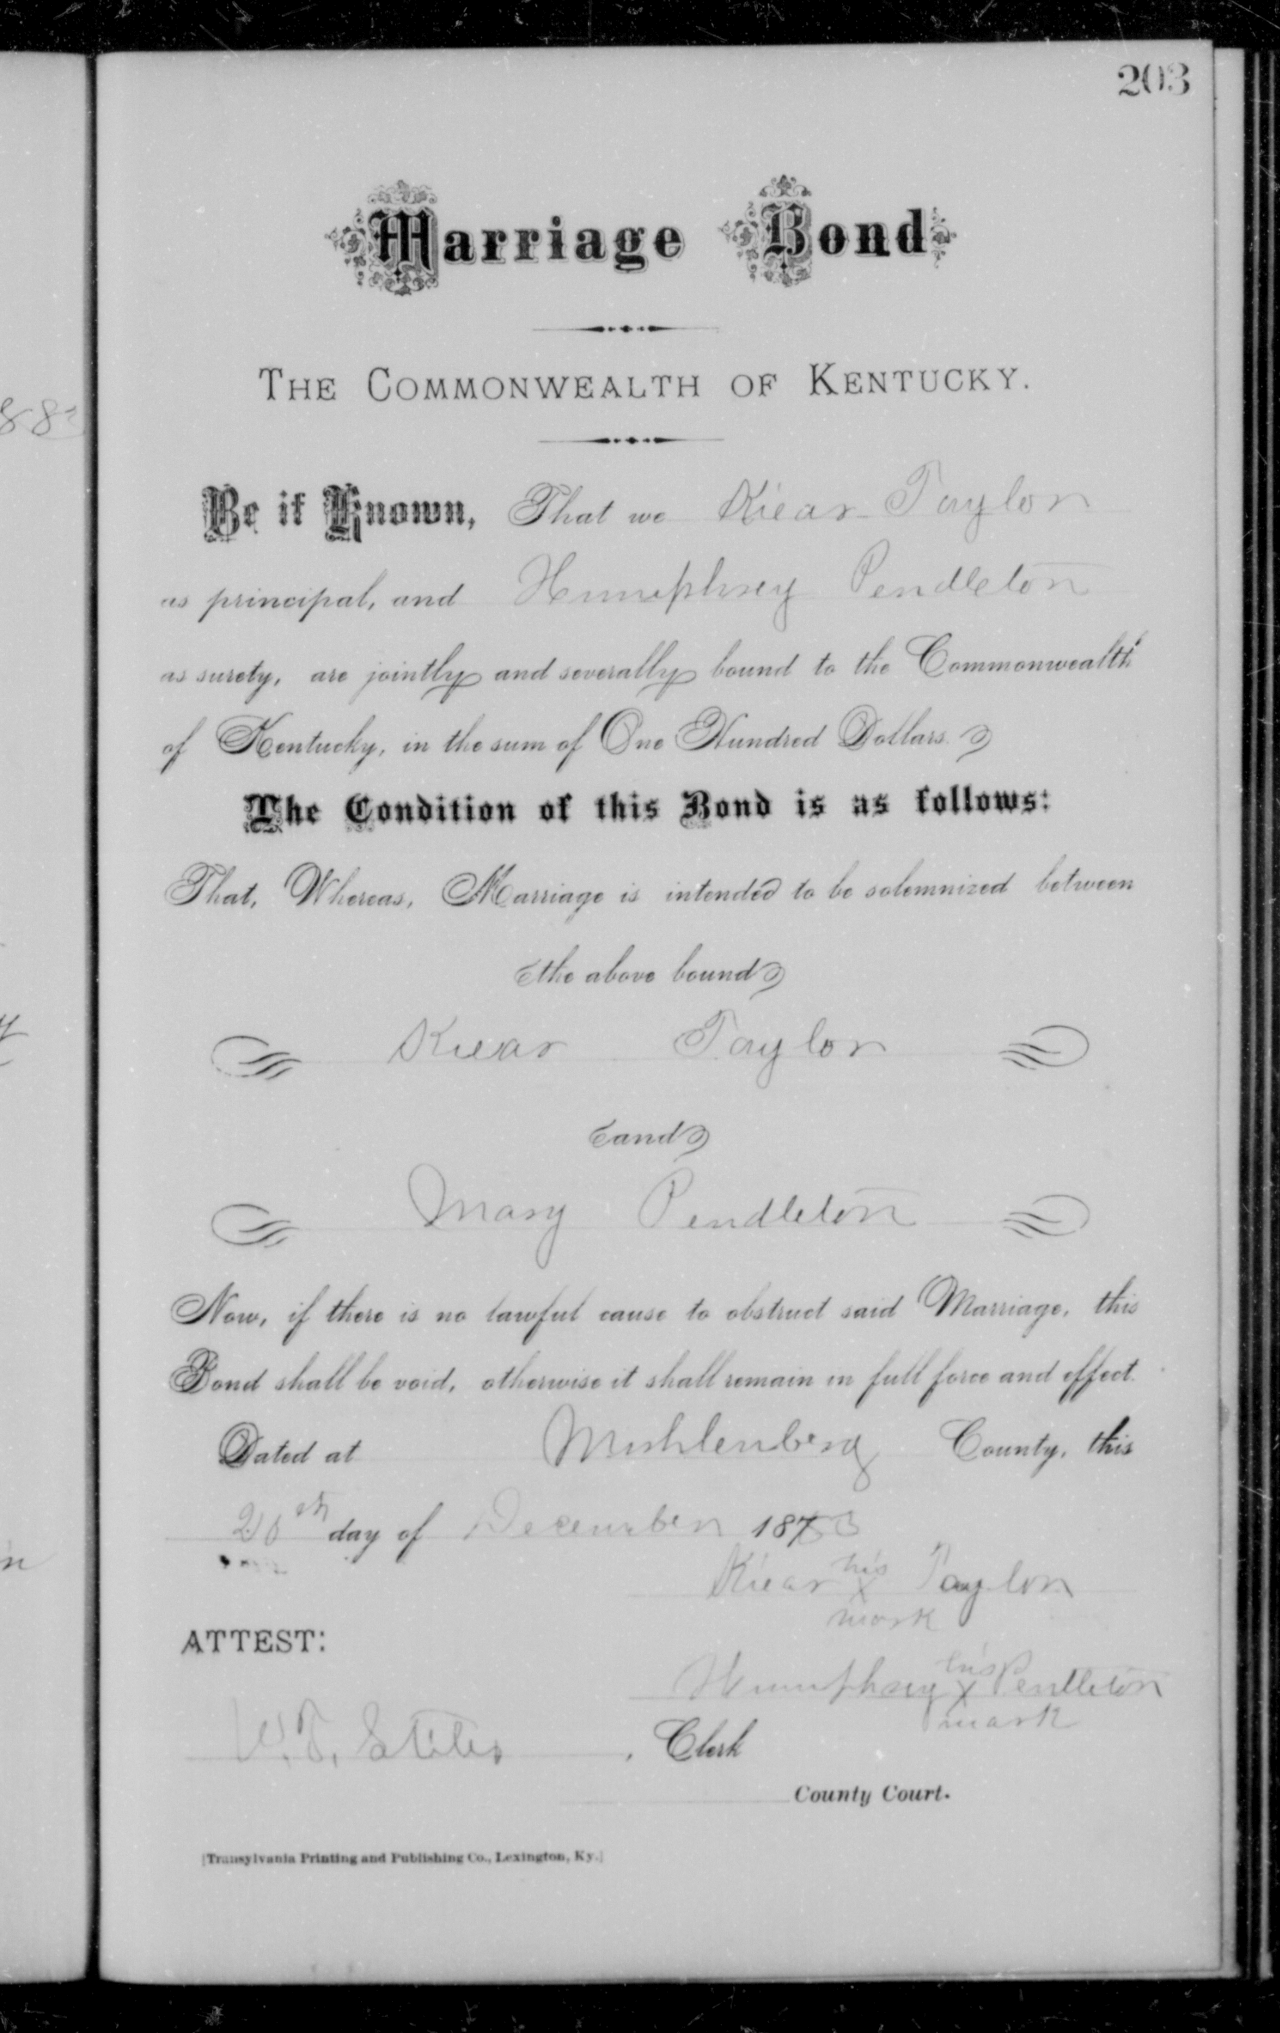 203
Marriage Bond
THE COMMONWEALTH OF KENTUCKY.
Be it Known, That we Kiear Taylor
as principal, and Humphrey Pendleton
as surety, are jointly and severally bound to the Commonwealth
of Kentucky, in the sum of One Hundred Dollars.
The Condition of this Bond is as follows:
That, Whereas, Marriage is intended to be solemnized between
the above bound
Kiear Taylor
and
Mary Pendleton
Now, if there is no lawful cause to obstruct said Marriage, this
Bond shall be void, otherwise it shall remain in full force and effect.
Dated at Muhlenberg County, this
day of December 1883
Kiear his X mark Taylor
ATTEST:
Humphrey his X mark Pendleton
W.T. Stiles, Clerk
County Court.
[Transylvania Printing and Publishing Co., Lexington, Ky.]